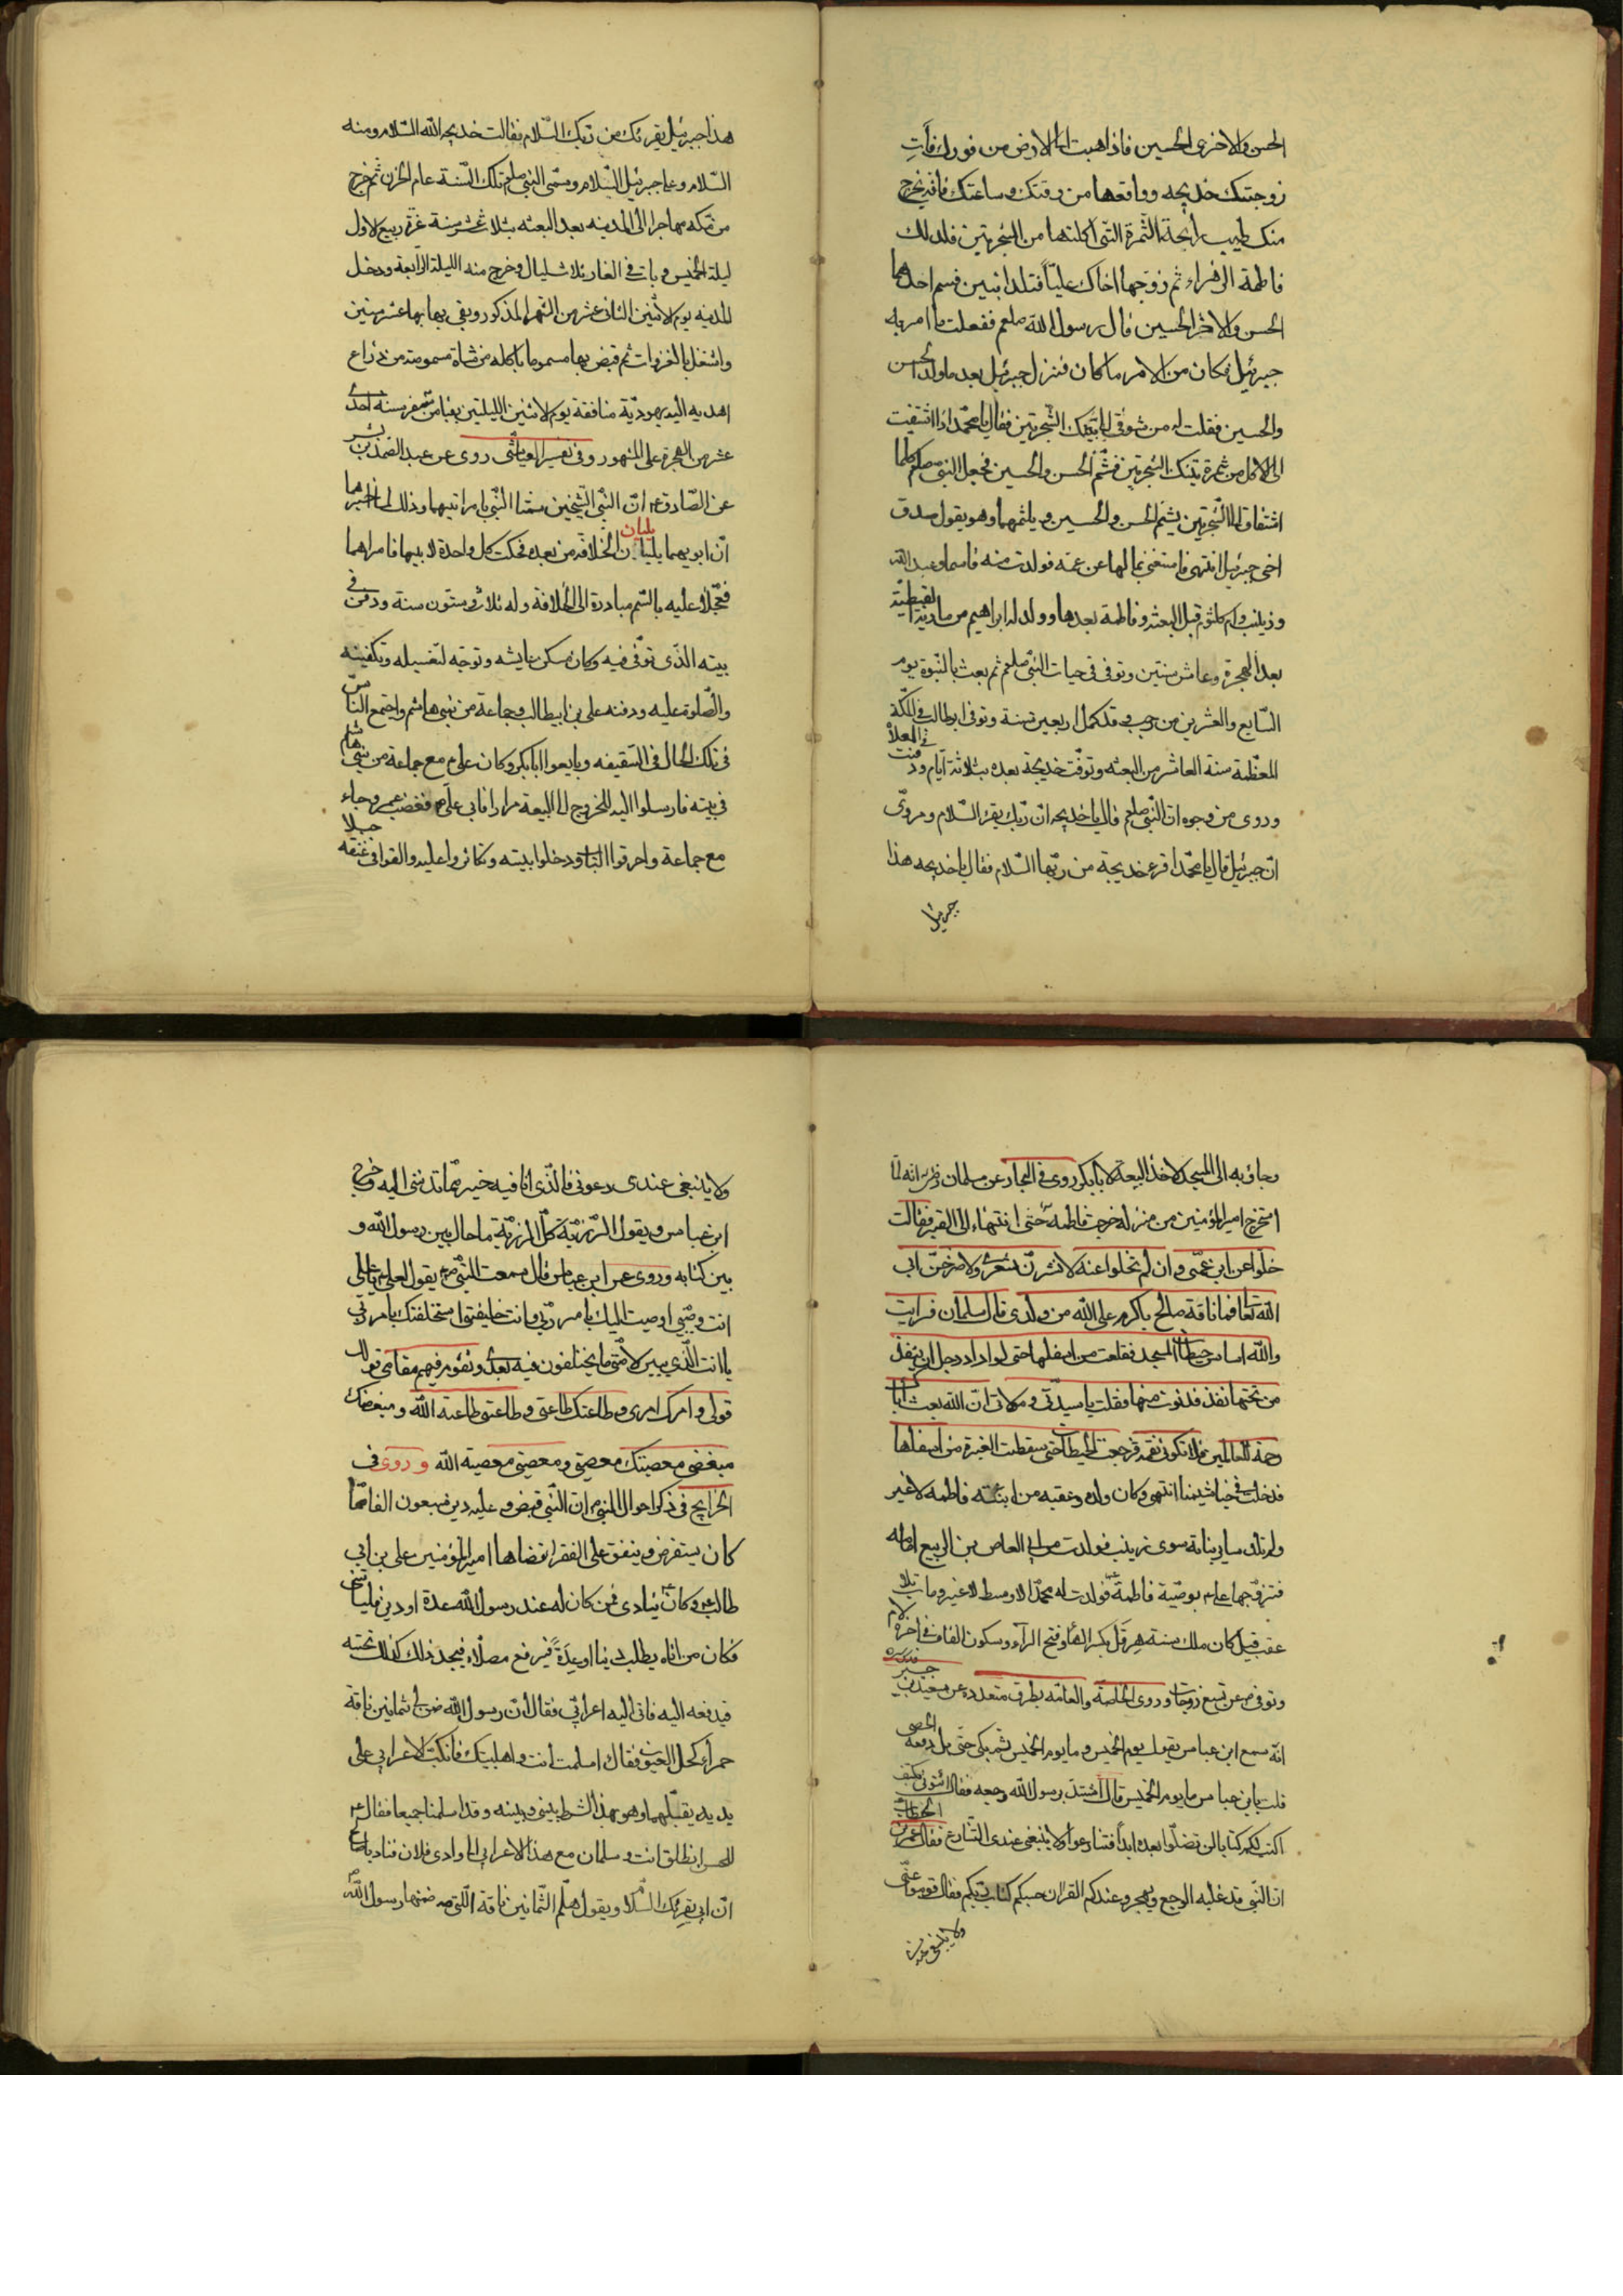 الحسن والاخرى الحسين فاذا هبت الى الارض من فورك فأت
زوجتك خديجه وواقعها من وقتك وساعتك فانه يخرج
منك طيب رايحة الثمرة التى اكلتها من الشجرتين فلد لك
فاطمة الزهراء ثم زوجها اخاك عليّاً فتلد ابنين فسم احدهما
الحسن والاخر الحسين قال رسول الله صلعم ففعلت ما امر به
جبرئيل فكان من الامر ما كان فنزل جبرئيل بعد ما ولد الحسن
والحسين فقلت له من شوقى الى تينك الشجرتين فقال يا محمد اذا اشتقت
الى الاكل من ثمرة تينك الشجرتين فشمّ الحسن والحسين فجعل النبى صلعم كلما
اشتاق الى الشجرتين يشم الحسن والحسين ويلثمهما وهو يقول صدق
اخى جبرئيل انتهى فاستغنى بمالها عن عمه فولدت منه قاسما وعبد الله
وزينب وام كلثوم قبل البعثه وفاطمة بعدها وولد له ابراهيم من مارية القبطيّة
بعد الهجرة وعاش سنتين وتوفى فى حيات النبى صلعم ثم بعث بالنبوة يوم
السابع والعشرين من رجب وقد كمل اربعين سنة وتوفى ابو طالب فى المكّة
المعظمة سنة العاشر من البعثه وتوفت خديجة بعده بثلاثة ايام ودفنت فى المعلاّ
وروى من وجوه ان النبى صلعم قال يا خديجه ان ربّك يقرء السّلام وروى
انّ جبرئيل قال يا محمد اقرء خديجة من ربّها السّلام فقال يا خديجه هذا
جبرئيل
هذا جبرئيل يقرئك من ربّك السّلام فقالت خديجه الله السّلام ومنه
السّلام وعلى جبرئيل السّلام وسمّى النبى صلعم تلك السّنة عام الحزن ثم خرج
من مكه مهاجرا الى المدينه بعد البعثه بثلاث عشر سنة غرّة ربيع الاول
ليلة الخميس وبات فى الغار ثلاث ليال وخرج منه الليلة الرابعة ودخل
المدينه يوم الاثنين الثانى عشر من الشهر المذكور وبقى بها عشر سنين
واشتغل بالغزوات ثم قبض بها مسموما باكله من شاة مسمومة من ذراع
اهديه اليه يهوديّة منافقة يوم الاثنين لليلتين بقيا من صفر سنة احدى
عشر من الهجرة على المشهور وفى تفسير العياشى روى عن عبد الصمد بن بشير
عن الصّادق ع انّ النبى الشيخين سمتا النّبى بامراتيهما وذلك لما اخبرهما
انّ ابويهما يليان الخلافة من بعده فحكت كل واحدة لابيها فامراهما
فعجّلا عليه بالسّم مبادرة الى الخلافة وله ثلاث وستون سنة ودفن فى
بيته الذى توفّى فيه وكان مسكن عايشه وتوجّه لتغسيله وتكفينه
والصّلوة عليه ودفنه على بن ابيطالب وجماعة من بنى هاشم واجتمع الناس
فى تلك الحال فى السّقيفه وبايعوا ابا بكر وكان على ع مع جماعة من بنى هاشم
فى بيته فارسلوا اليه للخروج الى البيعة مرارا فابى على ع فغضب عمر وجاء
مع جماعة واحرقوا الباب ودخلوا بيته وتكاثروا عليه والقوا فى عنقه حبلا
وجاؤ به الى المسجد لاخذ البيعة لابا بكر روى فى البحار عن سلمان انه لمّا
استخرج امير المؤمنين من منزله خرجت فاطمه حتى انتهت الى القبر فقالت
خلّوا عن ابن عمّى وان لم تخلوا عنه لانشرنّ شعرى ولاصرخنّ الى
الله تعالى فما ناقة صالح باكرم على الله من ولدى قال سلمان فرايت
والله اساس حيطان المسجد تقلعت من اسفلها حتى لو اراد رجل ان ينفذ
من تحتها نفذ فدنوت منها فقلت يا سيدتى ومولاتى انّ الله بعث اباك
رحمة للعالمين فلا تكونى نقمه فرجعت الحيطان حتى سقطت الغبرة من اسفلها
فدخلت فى خياشيمنا انتهى وكان ولده وعقبه من ابنته فاطمه لا غير
ولم تلد ساير بناته سوى زينب فولدت من ابى العاص بن الربيع امامه
فتزوّجها على ع بوصيّة فاطمة فولدت له محمدا الاوسط لا غير ومات بلا
عقب قيل كان ملك سنته هرقل بكسر الهاء وفتح الراء وسكون القاف فى اخره لام
وتوفى ص عن تسع زوجات وروى الخاصّة والعامّه بطرق متعدده عن سعيد بن جبير
انّه سمع ابن عباس يقول يوم الخميس وما يوم الخميس ثم بكى حتّى بل دمعه الحصى
قلت يابن عباس ما يوم الخميس قال اشتدّ برسول الله وجعه فقال ائتونى بكتف
اكتب لكم كتابا لن تضلّوا بعده ابداً فتنازعوا ولا ينبغى عندى التنازع فقال عمر بن الخطاب
ان النّبى قد غلبه الوجع ويهجر وعندكم القران حسبكم كتاب ربّكم فقال قوموا عنّى
ولا ينبغى عندى
ولا ينبغى عندى دعونى فالّذى انا فيه خير ممّا تدعونى اليه وخرج
ابن عباس ويقول الرّزيّة كلّ الرزيّة ما حال بين رسول الله و
بين كتابه وروى عن ابن عباس قال سمعت النّبى ص يقول لعلى ع يا على
انت وصّيى اوصيت اليك بامر ربّى وانت خليفتى استخلفتك بامر ربّى
يا انت الّذى يبين لامّتى ما يختلفون فيه بعدى وتقوم فيهم مقامى قولك
قولى وامرك امرى وطاعتك طاعتى وطاعتى طاعة الله ومبغضك
مبغضى معصيتك معصيتى ومعصيتى معصية الله وروى فى
الخرايج فى ذكر احوال النبى ص ان النّبى قبض وعليه دين سبعون الفا
كان يستقرض وينفق على الفقرا فقضاها امير المؤمنين على بن ابى
طالب ع وكان ينادى من كان له عند رسول الله عدة او دين فلياتنى
فكان من اتاه يطلب دينا او عِدَةً يرفع مصلّاه فيجد ذلك كذلك تحته
فيدفعه اليه فاتى اليه اعرابى فقال انّ رسول الله ضمن لى ثمانين ناقة
حمراء كحل العيون فقال اسلمت انت واهلبيتك فانكبّ الاعرابى على
يديه يقبّلهما وهو بهذا الشرط بينى وبينه وقد اسلمنا جميعا فقال ع
للحسن انطلق انت وسلمان مع هذا الاعرابى الى وادى فلان فناد يا صالح
انّ ابى يقرئك السّلام ويقول هلّم الثّمانين ناقة اللّتى ضمنها رسول الله